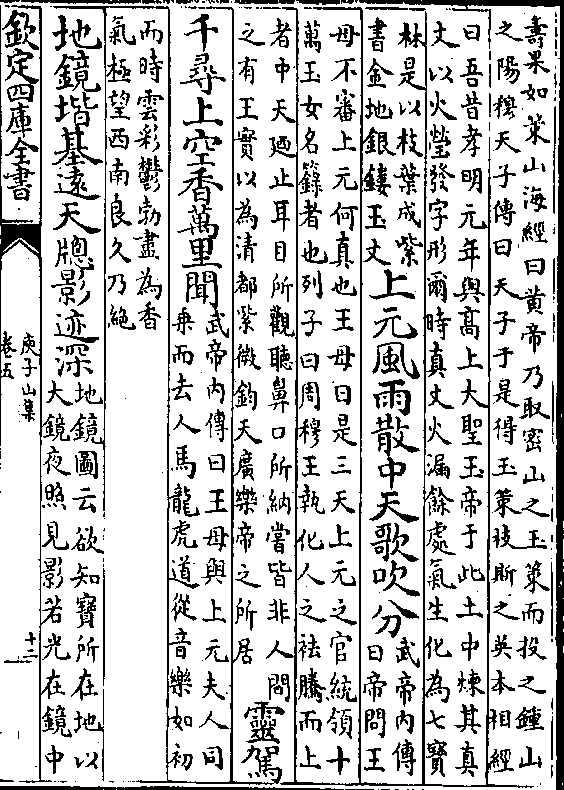 壽果如䇿山海經曰黄帝乃取密山之玉䇿而投之鍾山
之陽穆天子傳曰天子于是得玉䇿枝斯之英本相經
曰吾昔孝明元年與髙上大聖玉帝于此土中煉其真
文以火瑩發字形爾時真文火漏餘處氣生化為七寳
林是以枝葉成紫
書金地銀鏤玉文
上元風雨散中天歌吹分
武帝内傳
曰帝問王
母不審上元何真也王母曰是三天上元之官統領十
萬玉女名籙者也列子曰周穆王執化人之袪騰而上
者中天廼止耳目所觀聽鼻口所納嘗皆非人間
之有王實以為清都紫微鈞天廣樂帝之所居
靈駕
千尋上空香萬里聞
武帝内傳曰王母與上元夫人同
乗而去人馬龍虎道從音樂如初
而時雲彩鬱勃盡為香
氣極望西南良久乃絶
地鏡堦基逺天牕影迹深
地鏡圖云欲知寶所在地以
大鏡夜照見影若光在鏡中
欽定四庫全書
庾子山集
卷五
十三